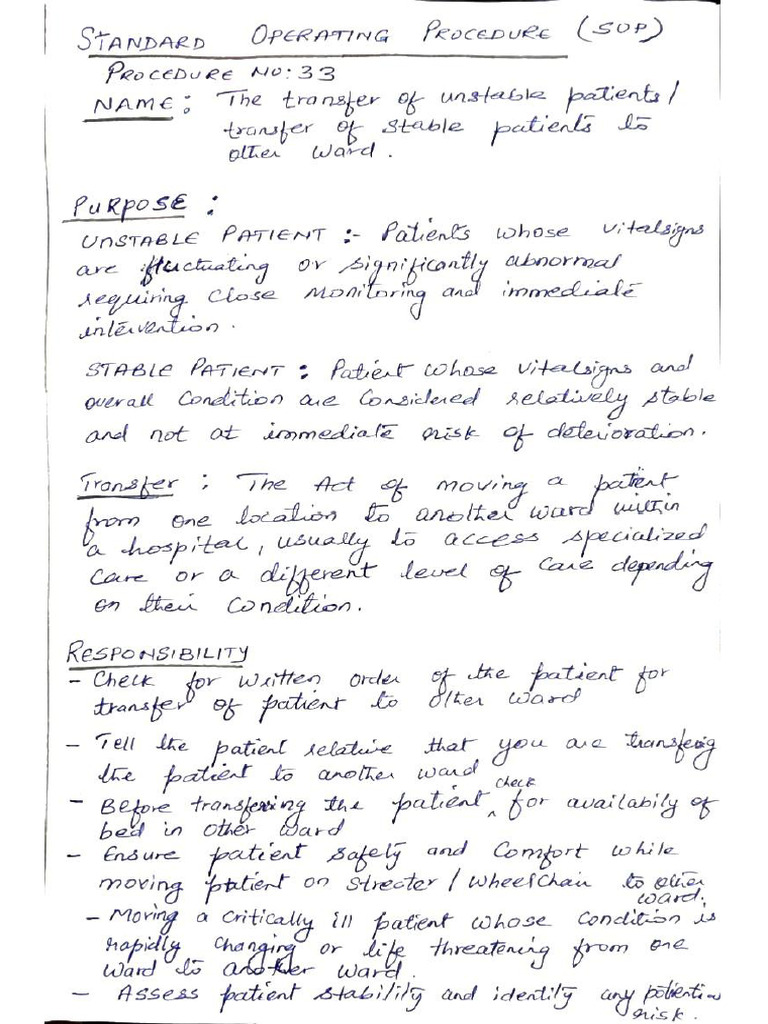 STANDARD OPERATING PROCEDURE (SOP)
PROCEDURE NO: 33
NAME: The transfer of unstable patients/
transfer of stable patients to
other ward.
PURPOSE:
UNSTABLE PATIENT :- Patients whose vitalsigns
are fluctuating or significantly abnormal
requiring close monitoring and immediate
intervention.
STABLE PATIENT : Patient whose vitalsigns and
overall condition are considered relatively stable
and not at immediate risk of deterioration.
Transfer : The Act of moving a patient
from one location to another ward within
a hospital, usually to access specialized
care or a different level of care depending
on their condition.
RESPONSIBILITY
- Check for written order of the patient for
transfer of patient to other ward
- Tell the patient relative that you are transfering
the patient to another ward
- Before transfering the patient ^check for availabily of
bed in other ward
- Ensure patient safety and comfort while
moving patient on strecter/wheelchair to other
ward.
- Moving a critically ill patient whose condition is
rapidly changing or life threatening from one
ward to another ward.
- Assess patient stability and identify any potential
risk.